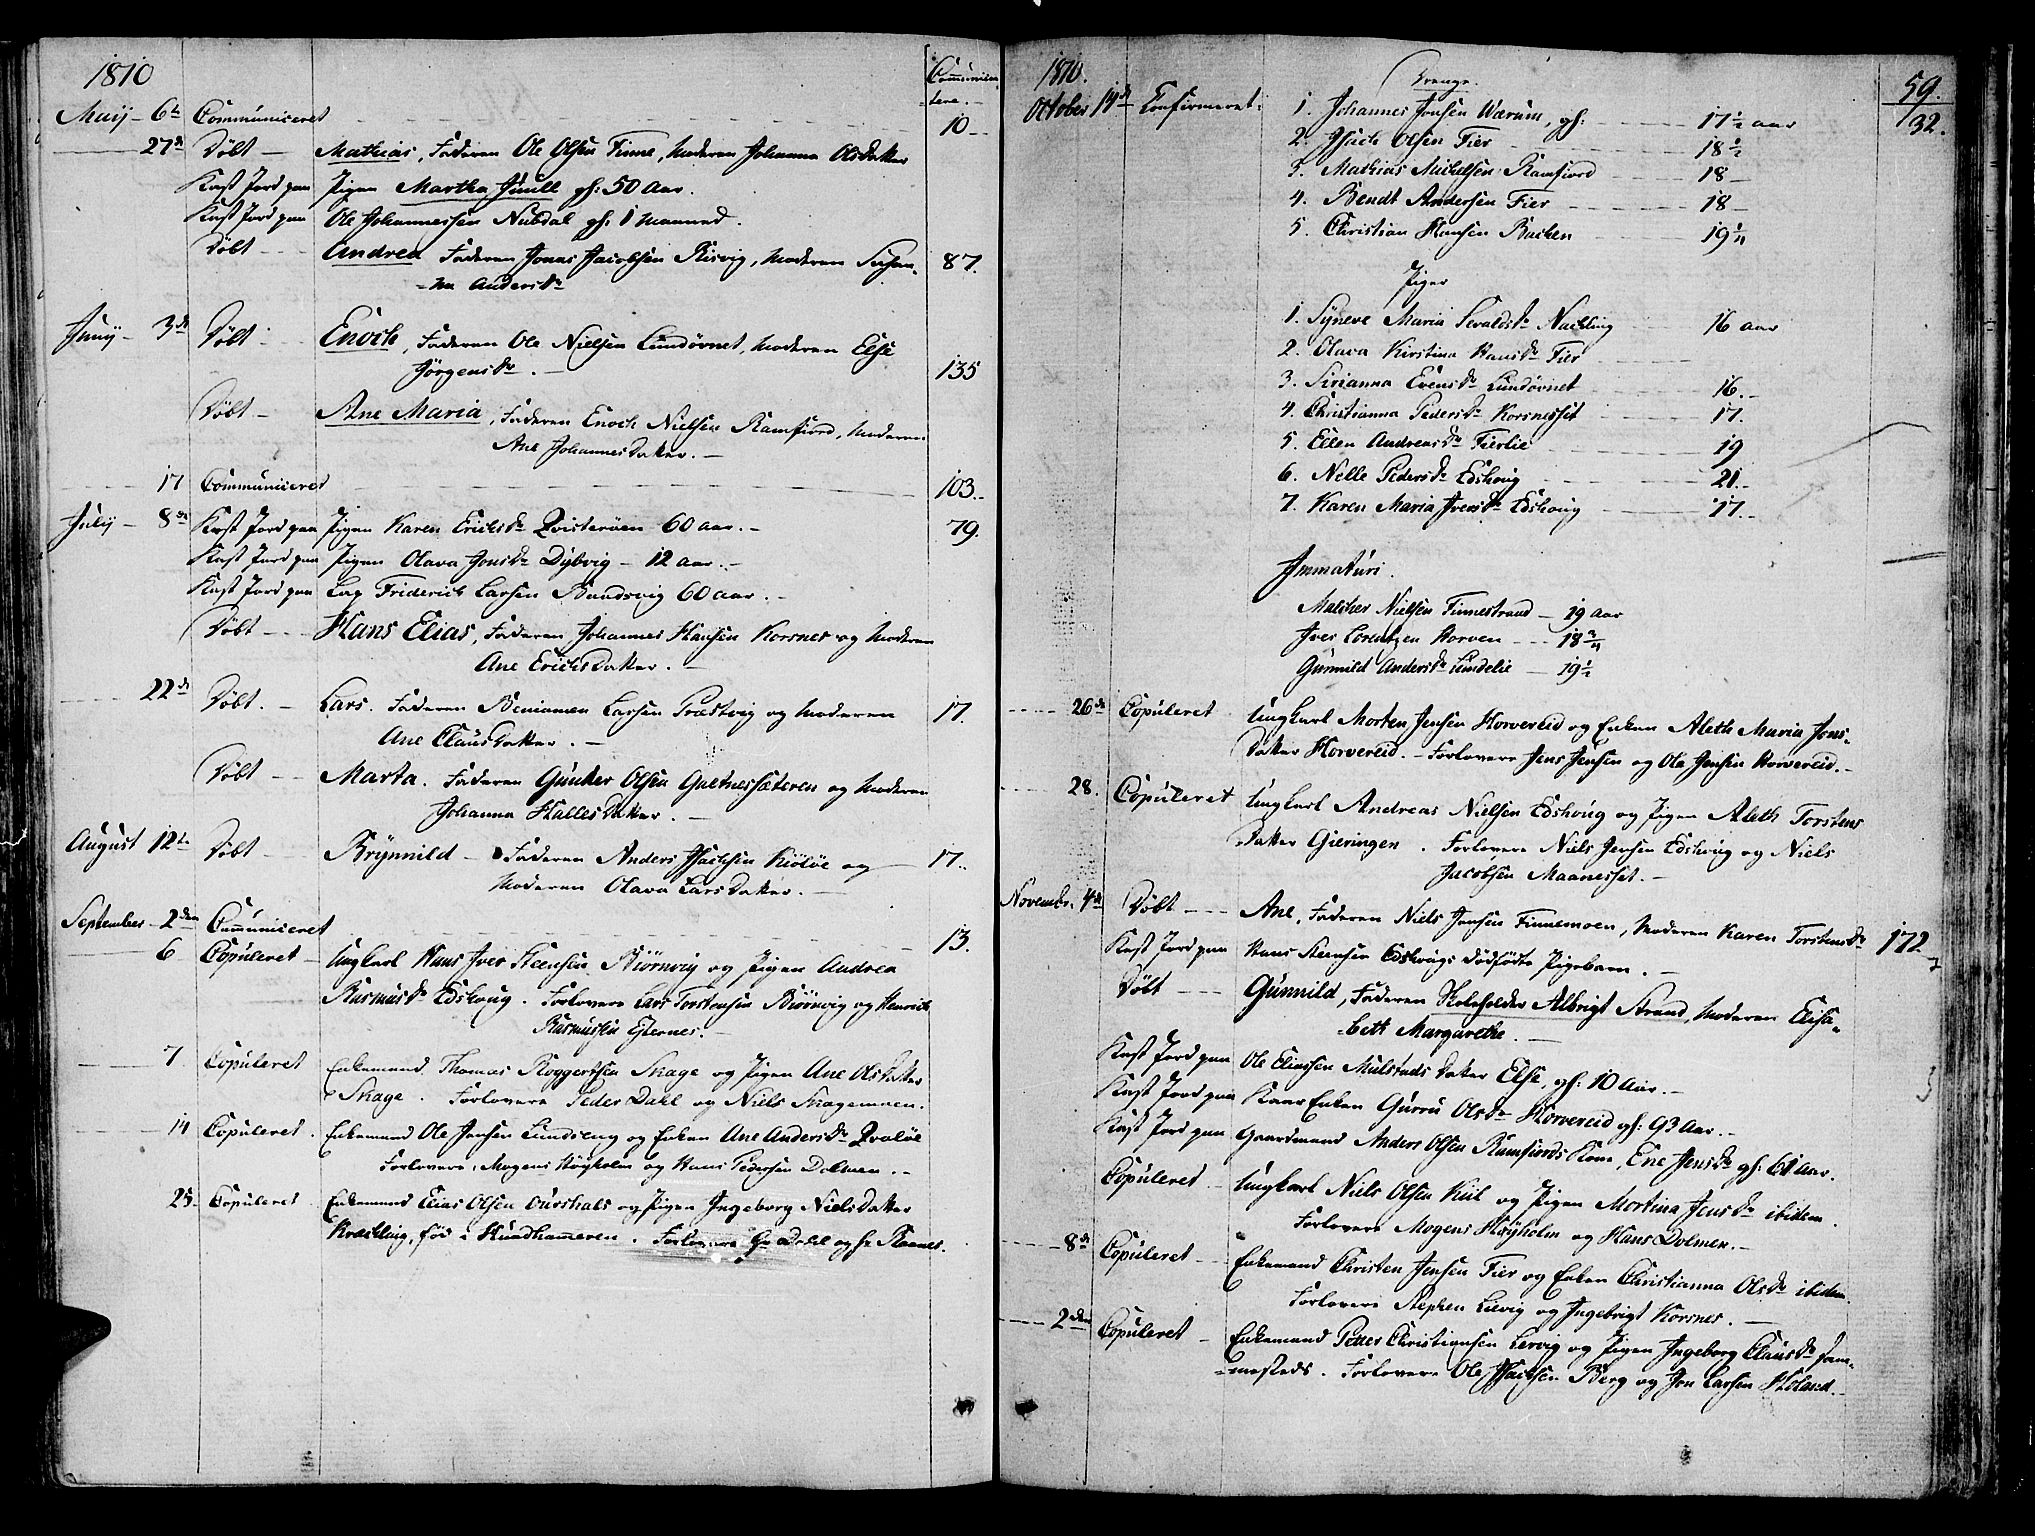 1810
Communicantere.
Maij - 6te Communiceret 10
27de Døbt - Mathias, Faderen Ole Olsen Finne, Moderen Johanna Olsdatter
Kast Jord paa Pigen Martha Juull gl: 50 Aar.
Kast Jord paa Ole Johannessen Nubdal gl: 1 Maaned.
Døbt - Andrea Faderen Jonas Jacobsen Risvig, Moderen Susan- 87.
-na Andersdr
Junij - 3de Døbt - Enoch, Faderen Ole Nielsen Lundøvnet, Moderen Else
Jørgensdr. - 135
Døbt - Ane Maria, Faderen Enoch Nielsen Ramfiord, Moderen
Ane Johannesdatter. -
17 Communiceret 103.
July - 8de Kast Jord paa Pigen Karen Erichsdr Qvisterøen 60 aar. - 79.
Kast Jord paa Pigen Olava Jonsdr Dybvig - 12 aar. -
Kast Jord paa Lap Friderich Larsen Bundsvig 60 aar. -
Døbt - Hans Elias, Faderen Johannes Hansen Korsnes og Moderen
Ane Erichsdatter. -
22de Døbt. - Lars. Faderen Beniamen Larsen Præstvig og Moderen 17.
Ane Clausdatter. -
Døbt - Marta. Faderen Gunder Olsen Galtnessæteren og Moderen
Johanna Hallesdatter. -
August 12te Døbt Brynnild - Faderen Anders Isachsen Kiöløe og 17.
Moderen Olava Larsdatter. -
September - 2den Communiceret 13.
6 Copuleret - Ungkarl Hans Iver Steensen Biørnvig og Pigen Andrea
Rasmusdr Edshoug. Forlovere Lars Torstensen Biørnvig og Henrich
Rasmussen Efternes. -
7. Copuleret Enkemand Thomas Roggertsen Skage og Pigen Ane Olsdatter
Skage. Forlovere Peder Dahl og Niels Skagemoen.
14 Copuleret. Enkemand Ole Jensen Lundseng og Enken Ane Andersdr Qvaløe
Forlovere, Mogens Høyholm og Hans Pedersen Dolmen. -
25. Copuleret Enkemand Elias Olsen Ourshals og Pigen Ingeborg Nielsdatter
Krækling, fød i Hundhammeren. Forlovere Hr Dahl og Hr Raanes.
1810. 59.
32.
October 14de Confirmeret: Drenge.
1. Johannes Jonsen Wærum, gl: 17 1/2 aar
2. Isach Olsen Fier 18 1/2
3. Mathias Michelsen Ramfiord 18 -
4. Bendt Andersen Fier 18 -
5. Christian Hansen Bachen 19 1/4
Piger
1. Syneve Maria Sevaldsdr Nachling 16 aar
2. Olava Kirstina Hansdr Fier
3. Sirianna Evensdr Lundøvnet 16. -
4. Christianna Pedersdr Korsnesset 17.
5. Ellen Andreasdr Fierlie 19
6. Nelle Pedersdr Edshoug 21. -
7. Karen Maria Iversdr Edshoug 17. -
Immaturi.
Malcher Nielsen Finnestrand - 19 aar
Iver Lorentzen Horven 18 3/4
Gunnild Andersdr Lundelie - 19 1/2
26de Copuleret Ungkarl Morten Jensen Horvereid og Enken Aleth Maria Jons-
datter Horvereid. - Forlovere Jens Jensen og Ole Jensen Horvereid. -
28. Copuleret Ungkarl Andreas Nielsen Edshoug og Pigen Aleth Torstens
datter Gieringen. Forlovere Niels Jensen Edshoug og Niels
Jacobsen Maanesset. -
Novembr. 4de Døbt - Ane, Faderen Niels Jensen Finnemoen, Moderen Karen Torstensdr 172
Kast Jord paa Hans Steensen Edshougs dødfødte Pigebarn. -
Døbt - Gunnild, Faderen Skoleholder Albrigt Strand, Moderen Elisa-
beth Margarethe. -
Kast Jord paa Ole Eliassen Mulstads datter Else, gl: 10 Aar. -
Kast Jord paa Kaar Enken Gurru Olsdr Horvereid gl: 93 Aar. -
Kast Jord paa Gaardmand Anders Olsen Ramfiords Kone, Ene Jensdr gl: 61 Aar.
Copuleret - Ungkarl Niels Olsen Kiil og Pigen Mortina Jensdr ibidem.
Forlovere Mogens Høyholm og Hans Dolmen. -
8de Copuleret - Enkemand Christen Jensen Fier og Enken Christianna Olsdr ibidem.
Forlovere Stephen Lievig og Ingebrigt Korsnes. -
2den Copuleret - Enkemand Peder Christiansen Lervig og Pigen Ingeborg Clausdr sam-
mesteds. Forlovere Ole Isachsen Berg og Jon Larsen Høland. -